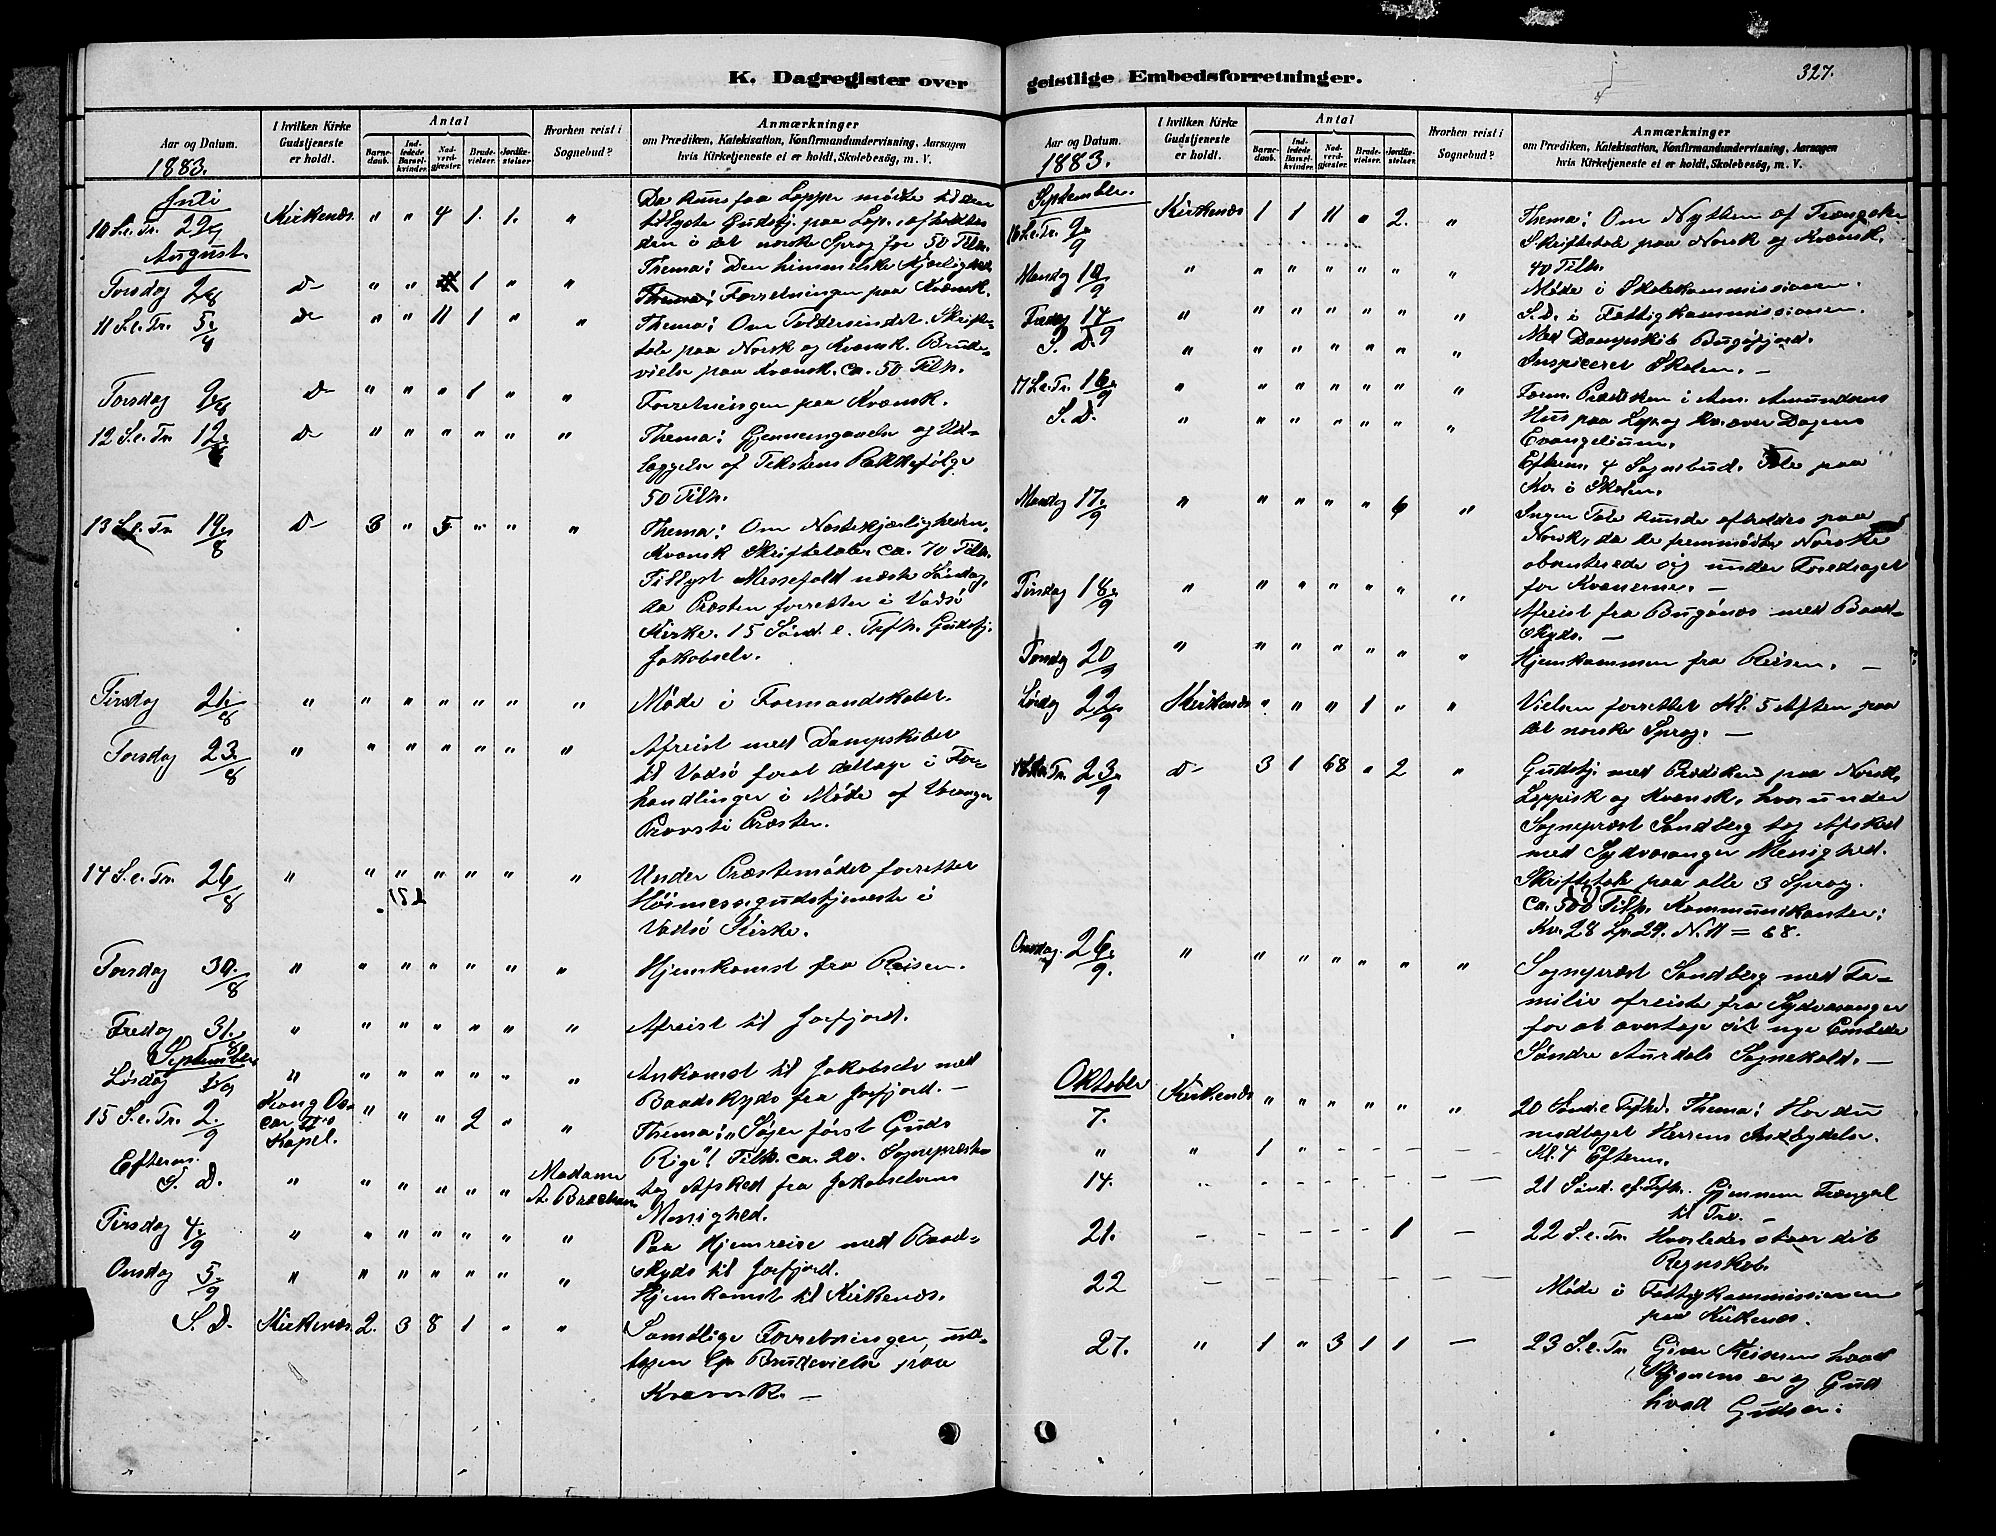 K. Dagregister over
Aar og Datum.
1883.
I hvilken Kirke Gudstjeneste er holdt.
Antal
Barnedaab.
Indledede Barselkvinder.
Nadverdgjester.
Brudevielser.
Jordfæstelser.
Hvorhen reist i Sognebud?
Anmærkninger
om Prædiken, Katekisation, Konfirmandundervisning, Aarsagen
hvis Kirketjeneste ei er holdt, Skolebesøg, m. V.
Juli
10 S.e.Tr. 29/7 Kirkenæs " " 4 1. 1. " Da kun faa Lapper mødte til den
tillyste Gudstj. paa Lap. afholdtes
den i det norske Sprog for 50 Tilh.
August.
Thema: Den himmelske Kjærlighed.
Torsdag 2/8 do " " 1 " " Forretningen paa Kvænsk.
11 S.e.Tr. 5/ do " " 11 1 " " Thema: Om Toldersindet. Skrift-
tale paa Norsk og Kvænsk. Brude-
vielse paa Kvænsk. ca. 50 Tilh.
Torsdag 9/8 do " " " 1 " " Forretningen paa Kvænsk.
12 S.e.Tr. 12/ do " " " " " " Thema: Gjennemgaaelse og Ud-
læggelse af Tekstens Rækkefølge
50 Tilh.
13 S.e.Tr. 19/8 do 3 " 5 " " " Thema: Om Næstekjærligheden.
Kvænsk Skriftetale. ca. 70 Tilh.
Tillyst Messefald næste Søndag,
da Præsten forretter i Vadsø
Kirke. 15 Sønd. e. Trefh. Gudstj.
Jakobselv.
Tirsdag 21/8 " " " " " " " Møde i Formandskabet.
Torsdag 23/8 " " " " " " " Afreist med Dampskibet
til Vadsø forat deltage i For-
handlinger i Møde af Varanger
Provsti Præster.
14 S.e.Tr. 26/8 " " " " " " " Under Præstemødet forrettet
Høimessegudstjeneste i
Vadsø Kirke.
Torsdag 30/8 " " " " " " " Hjemkomst fra Reisen.
Fredag 31/8 " " " " " " " Afreist til Jarfjord.
September
Lørdag 1/9 " " " " " " " Ankomst til Jakobselv med
Baadskyds fra Jarfjord. —
15 S.e.Tr. 2/9 Kong Os-
car II's
Kapel. " " " 2 " " Thema: "Søger først Guds
Rige"! Tilh. ca. 20. Sognepræsten
Efterm. S. D. " " " " " " Madame
A. tog Afsked fra Jakobselvens
Menighed.
Tirsdag 4/9 " " " " " " " Paa Hjemreise med Baad-
skyds til Jarfjord.
Onsdag 5/9 " " " " " " " Hjemkomst til Kirkenæs.
S. D. Kirkenæs. 2. 3 8 1 " " Samtlige Forretninger, und-
tagen Brudevielse paa
Kvænsk. —
geistlige Embedsforretninger.
327.
Aar og Datum.
1883.
I hvilken Kirke Gudstjeneste er holdt.
Antal
Barnedaab.
Indledede Barselkvinder.
Nadverdgjester.
Brudevielser.
Jordfæstelser.
Hvorhen reist i Sognebud?
Anmærkninger
om Prædiken, Katekisation, Konfirmandundervisning, Aarsagen
hvis Kirketjeneste ei er holdt, Skolebesøg, m. V.
September.
16 S.e.Tr. 9/9 Kirkenæs 1 1 11 " 2. " Thema: Om Nytten af Trængsler
Skriftetale paa Norsk og Kvænsk.
40 Tilh.
Mandag 10/9 " " " " " " " Møde i Skolekommissionen.
Fredag 14/9 " " " " " " " S.D. i Fattigkommissionen.
S. D. " " " " " " " Med Dampskib Bugøfjord.
Inspiceret Skolen. —
17 S.e.Tr. 16/9 " " " " " " " Form. Prædiken i Amundsens
Hus paa Lap. og Kv. over Dagens
Evangelium.
S. D. " " " " " " " Efterm. 4 Sognebud. Tale paa
Kv. i Skolen.
Mandag 17/9 " " " " " 6 " Ingen Tale kunde afholdes paa
Norsk, da de fremmødte Norske
absenterede sig under Foredraget
for Kvænerne. —
Tirsdag 18/9 " " " " " " " Afreist fra Bugønæs med Baad-
skyds. —
Torsdag 20/9 " " " " " " " Hjemkommen fra Reisen. —
Lørdag 22/9 Kirkenæs " " " 1 " " Vielsen forrettet Kl. 5 Aften paa
det norske Sprog. —
18 S.e.Tr. 23/9 do 3 1 68 " 2 " Gudstj. med Prædiken paa Norsk,
Lappisk og Kvænsk, hvorunder
Sognepræst Sandberg tog Afsked
med Sydvaranger Menighed.
Skriftetale paa alle 3 Sprog.
ca. 500 (?) Tilh. Kommunikanter:
Kv. 28 Lp. 29. N. 11 = 68.
Onsdag 26/9. " " " " " " " Sognepræst Sandberg med Fa-
milie afreiste fra Sydvaranger
for at overtage sit nye Embede
Søndre Aurdals Sognekald. —
Oktober
7. Kirkenæs " " " " " " 20 Sønd. e Trefhd. Thema: Har du
modtaget Herrens Indbydelse.
" " 1 " - - - - Kl. 4 Efterm.
14. 21 Sønd. ef. Trefh. Gjennem Trængsel
til Tro. —
21. - - - - 1 - 22 S.e.Tr. Hvorledes staar dit
Regnskab.
22 - - - - - - Møde i Fattigkommissionen
paa Kirkenæs.
27. " 1 " 3 1 1 - 23 S.e.Tr Giver Keiseren hvad
Keiserens er og Gud
hvad Guds er.